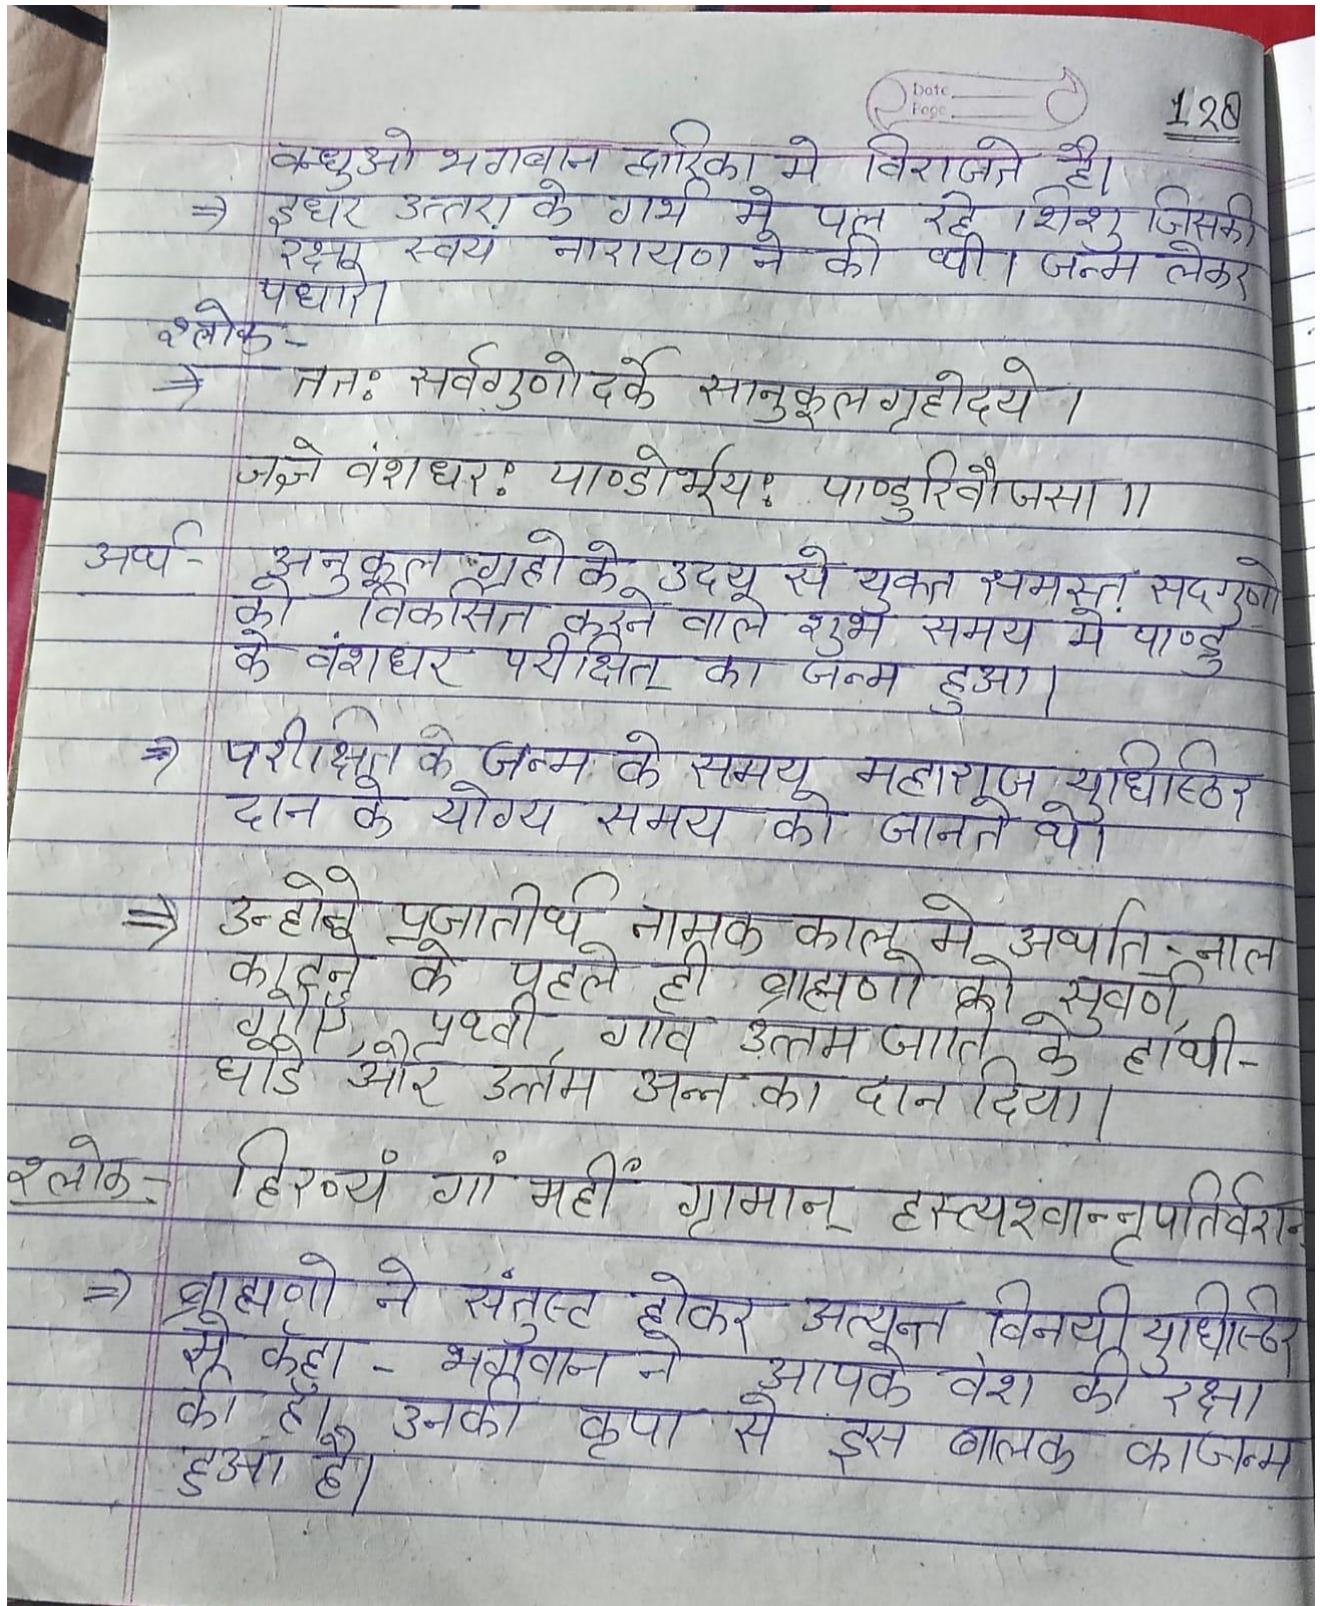 Date
Page
128
बन्धुओ भगवान द्वारिका मे विराजते है।
⇒ इधर उत्तरा के गर्भ मे पल रहे शिशु जिसकी
रक्षा स्वयं नारायण ने की थी। जन्म लेकर
पधारे।
श्लोक-
⇒ ततः सर्वगुणोदर्के सानुकूलग्रहोदये।
जज्ञे वंशधरः पाण्डोर्भूयः पाण्डुरिवौजसा॥
अर्थ- अनुकूल ग्रहो के उदय से युक्त समस्त सदगुणो
को विकसित करने वाले शुभ समय मे पाण्डु
के वंशधर परीक्षित् का जन्म हुआ।
⇒ परीक्षित के जन्म के समय महाराज युधिष्ठिर
दान के योग्य समय को जानते थे।
⇒ उन्होने प्रजातीर्थ नामक काल मे अर्थात-नाल
काटने के पहले ही ब्राह्मणो को सुवर्ण,
गौए, पृथ्वी, गाव उत्तम जाति के हाथी-
घोडे और उत्तम अन्न का दान दिया।
श्लोक- हिरण्यं गां महीं ग्रामान् हस्त्यश्वान्नृपतिर्वरान्
⇒ ब्राह्मणो ने संतुस्ट होकर अत्यन्त विनयी युधिस्ठिर
से कहा - भगवान ने आपके वंश की रक्षा
की है। उनकी कृपा से इस बालक का जन्म
हुआ है।